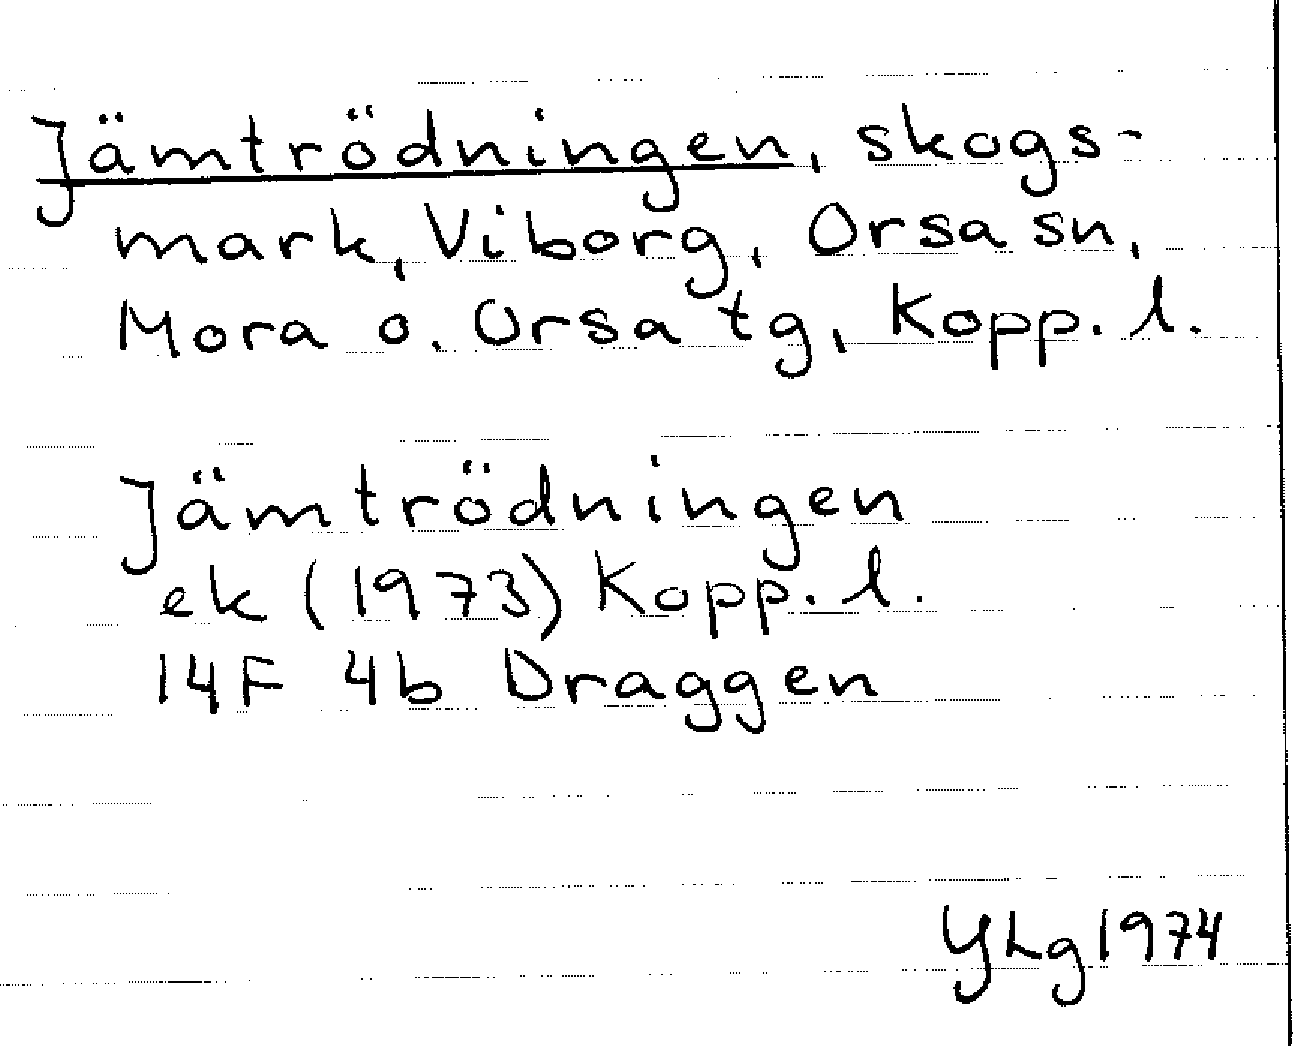 Jämtrödningen, skogs-
mark, Viborg, Orsa sn,
Mora o. Orsa tg, Kopp. l.
Jämtrödningen
ek (1973) Kopp. l.
14F 4b Draggen
YLg 1974